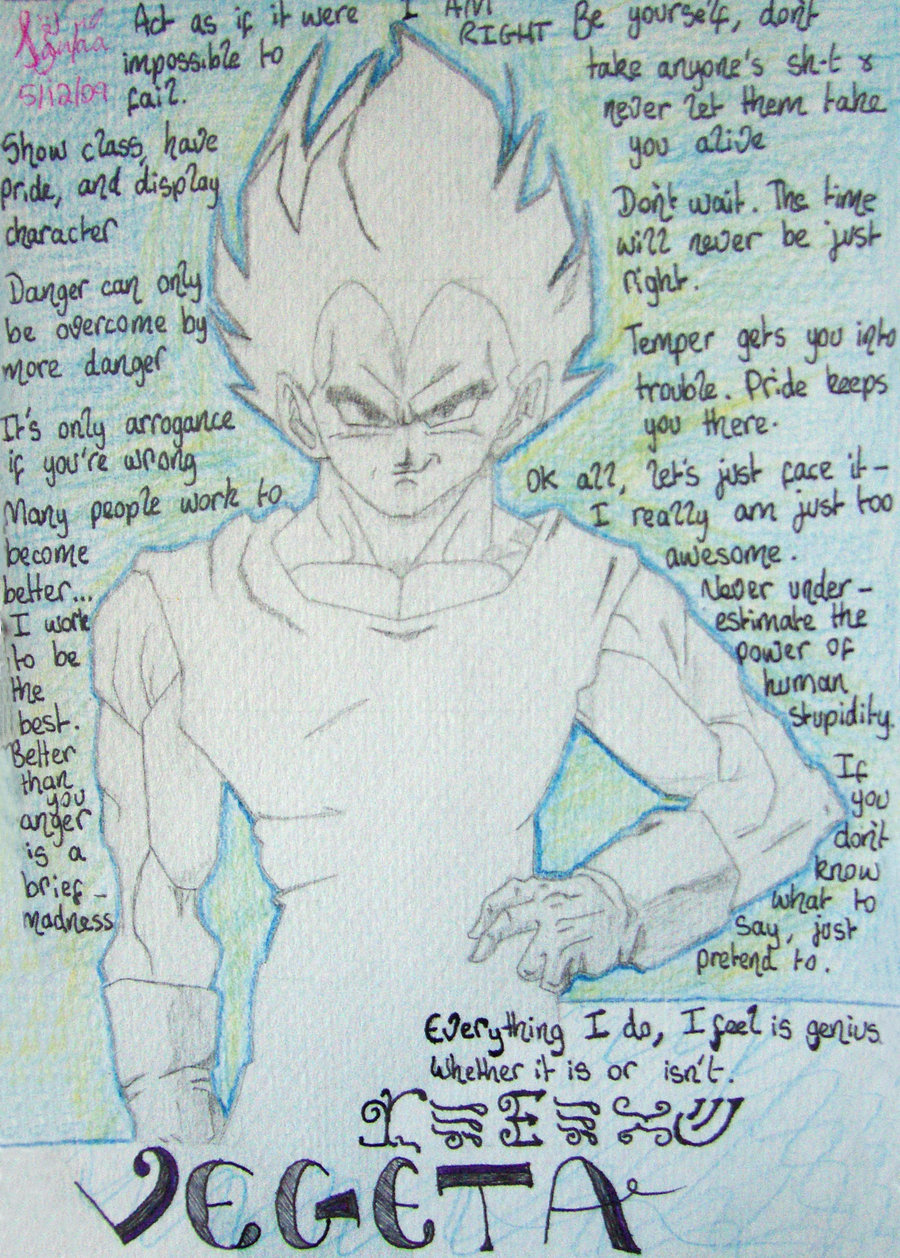 5/12/09
Act as if it were
impossible to
fail.
I AM
RIGHT
Be yourself, don't
take anyone's sh-t &
never let them take
you alive
Show class, have
pride, and display
character
Don't wait. The time
will never be just
right.
Danger can only
be overcome by
more danger
Temper gets you into
trouble. Pride keeps
you there.
It's only arrogance
if you're wrong
Ok all, let's just face it -
I really am just too
awesome.
Many people work to
become
better...
I work
to be
the
best.
Better
than
you
Never under-
estimate the
power of
human
stupidity.
anger
is a
brief
madness
If
you
don't
know
what to
say, just
pretend to.
Everything I do, I feel is genius.
Whether it is or isn't.
VEGETA